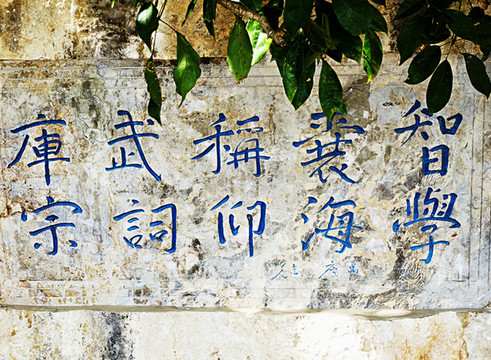 智囊稱武庫
學海仰詞宗